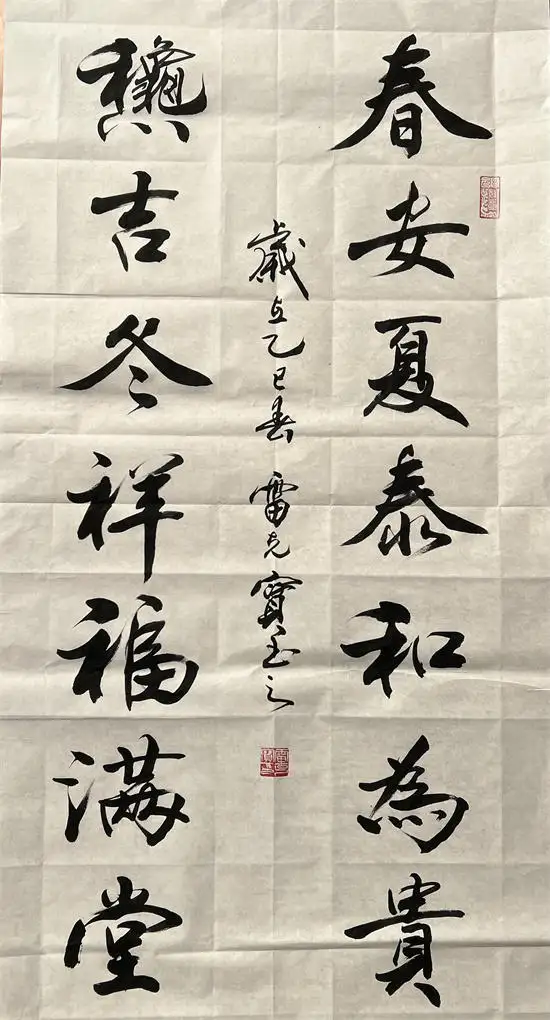 春安夏泰和為貴
龝吉冬祥福滿堂
歲在乙巳春 雷克寶